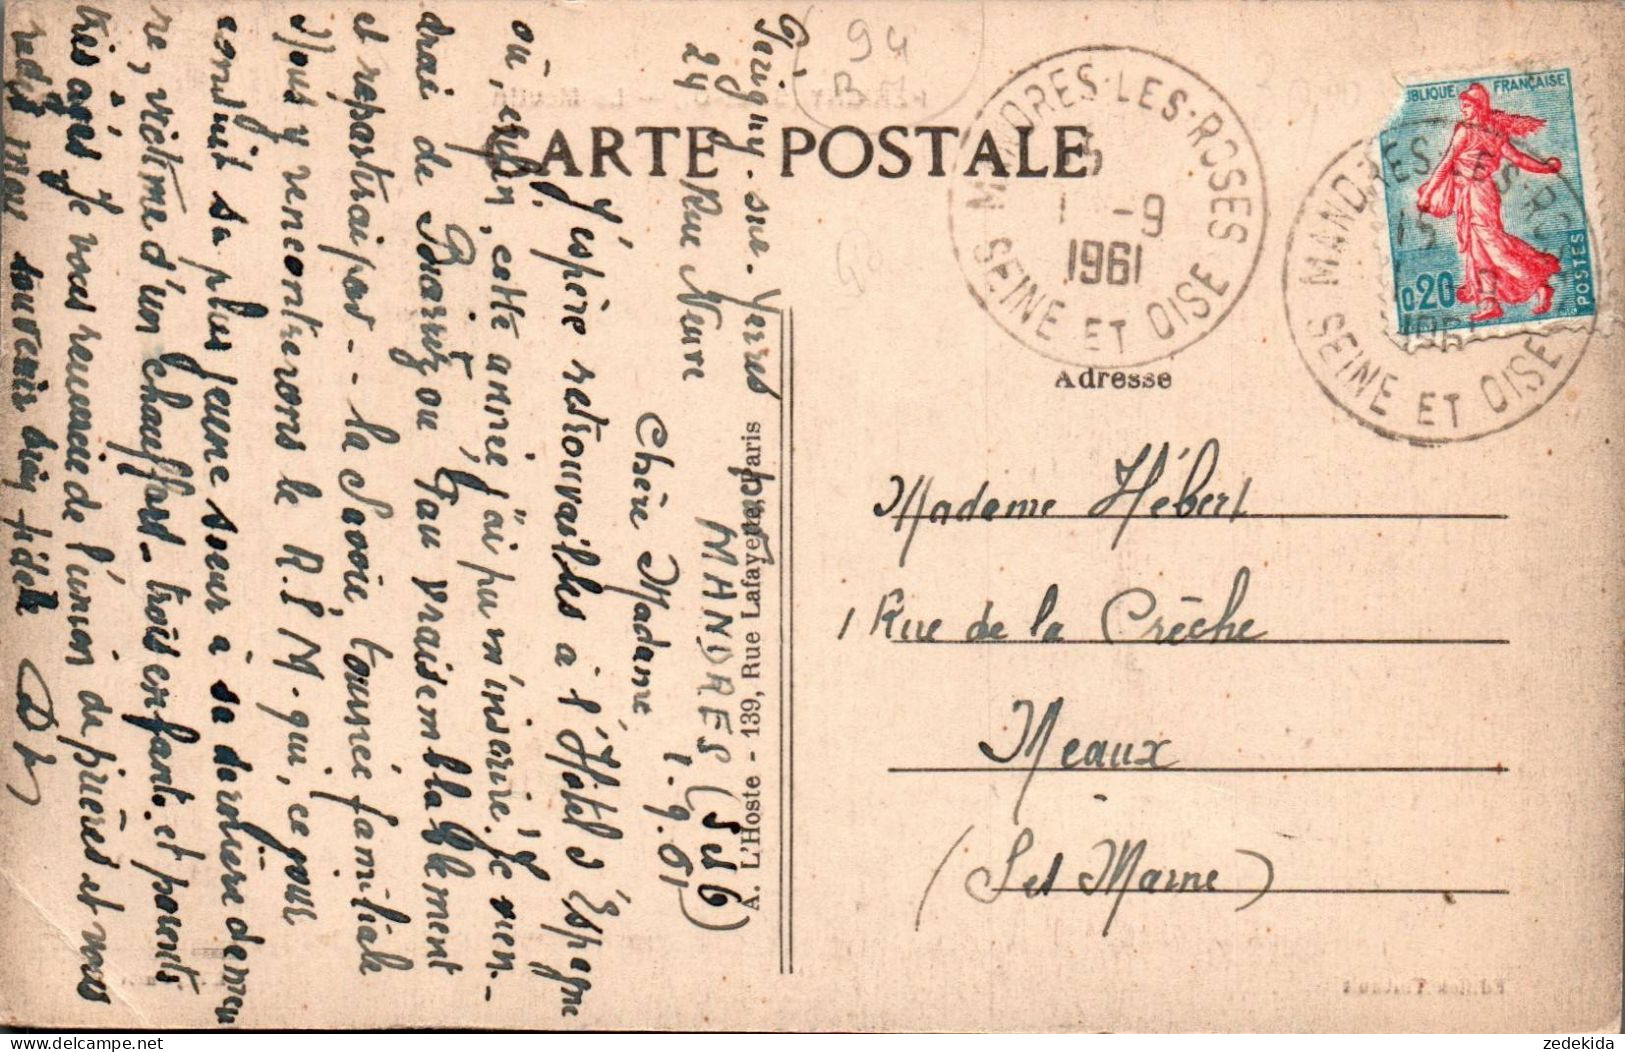 CARTE POSTALE
94
B
MANDRES-LES-ROSES
15
1 -9
1961
SEINE ET OISE
RÉPUBLIQUE FRANÇAISE
0,20
POSTES
MANDRES-LES-ROSES
15
SEINE ET OISE
Adresse
Madame Hébert
1 Rue de la Crèche
Meaux
(Set Marne)
A. L'Hoste - 139, Rue Lafayette, Paris
Périgny-sur-Yerres
24 Rue Neuve
MANDRES (S et O)
1.9.61
Chère Madame
J'espère
à l'Hôtel d'Espagne
où, enfin, cette année j'ai pu m'inscrire. Je n'en-
drai de Biarritz ou Pau vraisemblablement
et repartirai par - la Savoie, tournée familiale
Nous y rencontrerons le R.P M. qui, ce jour
conduit sa plus jeune sœur à sa dernière demeu
re, victime d'un chauffard - trois enfants et parents
très âgés. Je vous remercie de l'union de prières et vous
redis mon souvenir bien fidèle
zedekida